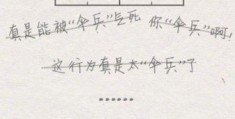 真是能被“伞兵”气死 你“伞兵”啊,
这行为真是太“伞兵”了
......